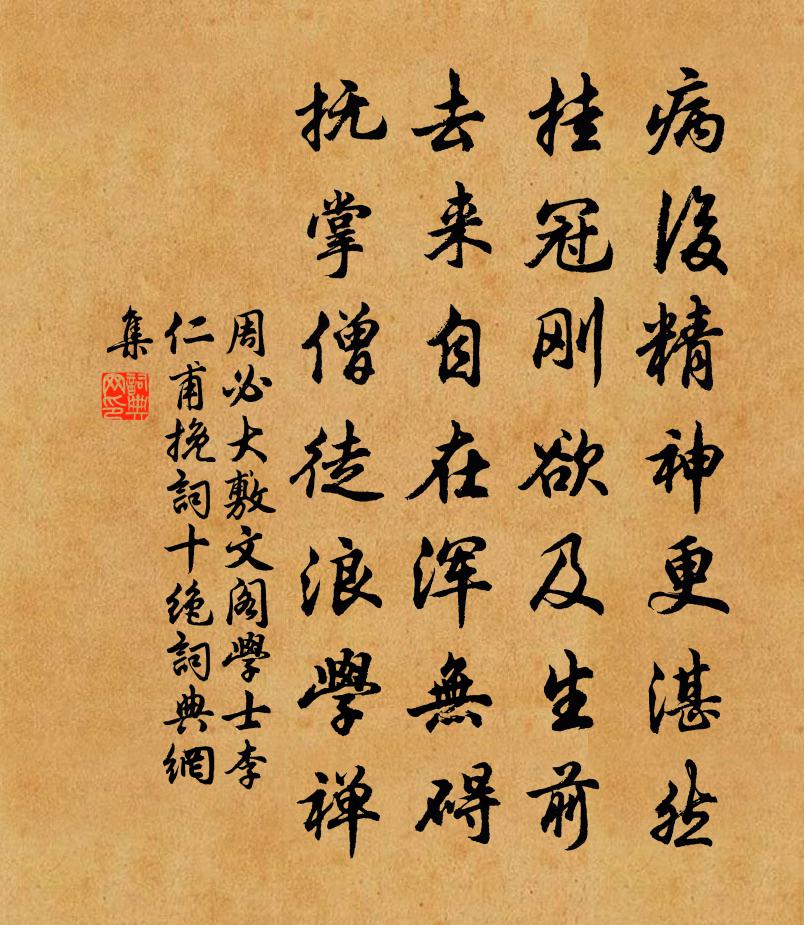 病後精神更湛然
挂冠刚欲及生前
去来自在浑無碍
抚掌僧徒浪學禅
周必大敷文阁學士李
仁甫挽詞十绝詞典網
集
詞典
网印